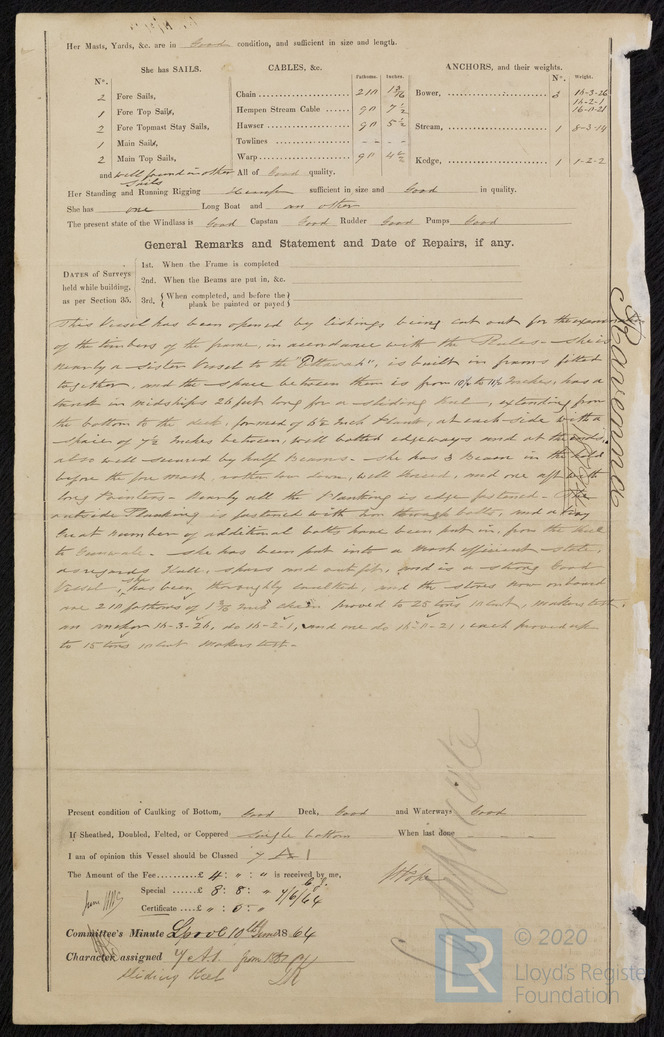 Her Masts, Yards, &c. are in Good condition, and sufficient in size and length.
She has SAILS.
No.
2 Fore Sails,
1 Fore Top Sails,
2 Fore Topmast Stay Sails,
1 Main Sails,
2 Main Top Sails,
and well found in other Sails
CABLES, &c. Fathoms. Inches.
Chain 210 1 3/16
Hempen Stream Cable 90 7 1/2
Hawser 90 5 1/2
Towlines - - - -
Warp 90 4 1/2
All of Good quality.
ANCHORS, and their weights.
No. Weight.
Bower, 3 16-3-26
16-2-1
16-0-21
Stream, 1 8-3-14
Kedge, 1 1-2-2
Her Standing and Running Rigging Hemp sufficient in size and Good in quality.
She has one Long Boat and an other
The present state of the Windlass is Good Capstan Good Rudder Good Pumps Good
General Remarks and Statement and Date of Repairs, if any.
DATES of Surveys held while building, as per Section 35.
1st. When the Frame is completed
2nd. When the Beams are put in, &c.
3rd, { When completed, and before the plank be painted or payed }
This Vessel has been opened by listings being cut out for the examination
of the timbers of the frame, in accordance with the Rules - She is
nearly a Sister Vessel to the "Ottawa", is built in frames fitted
together, and the space between them is from to Inches, has a
trunk in midships 26 feet long for a Sliding Keel, extending from
the bottom to the deck, formed of 6 1/2 Inch Plank, at each side with a
space of 7 1/2 Inches between, well bolted edgeways and at the ends,
also well secured by half Beams - She has 3 Beams in the hold
before the fore mast, rather low down, well kneed, and one aft with
long Pointers - Nearly all the Planking is edge fastened - The
outside Planking is fastened with Iron through bolts, and a very
Great number of additional bolts have been put in, from the Keel
to Gunwale - She has been put into a most efficient state,
as regards Hull, Spars and outfit, and is a strong Good
Vessel, she has been thoroughly caulked, and the stores now onboard
are 210 fathoms of 1 3/16 Inch chain proved to 25 tons 10 cwt, makers test,
an anchor 16-3-26, do 16-2-1, and one do 16-0-21, each proved up
to 15 tons 10 cwt makers test -
Ravenna
Present condition of Caulking of Bottom, Good Deck, Good and Waterways Good
If Sheathed, Doubled, Felted, or Coppered Single bottom When last done - - -
I am of opinion this Vessel should be Classed 7 A 1
The Amount of the Fee £ 4 : " : " is received by me,
Special £ 8 : 8 : " 7/6/64
Certificate £ " : 5 : "
Committee's Minute 10th June 1864
Character assigned 7 A1
Sliding Keel
Certificate
LR
© 2020
Lloyd's Register
Foundation